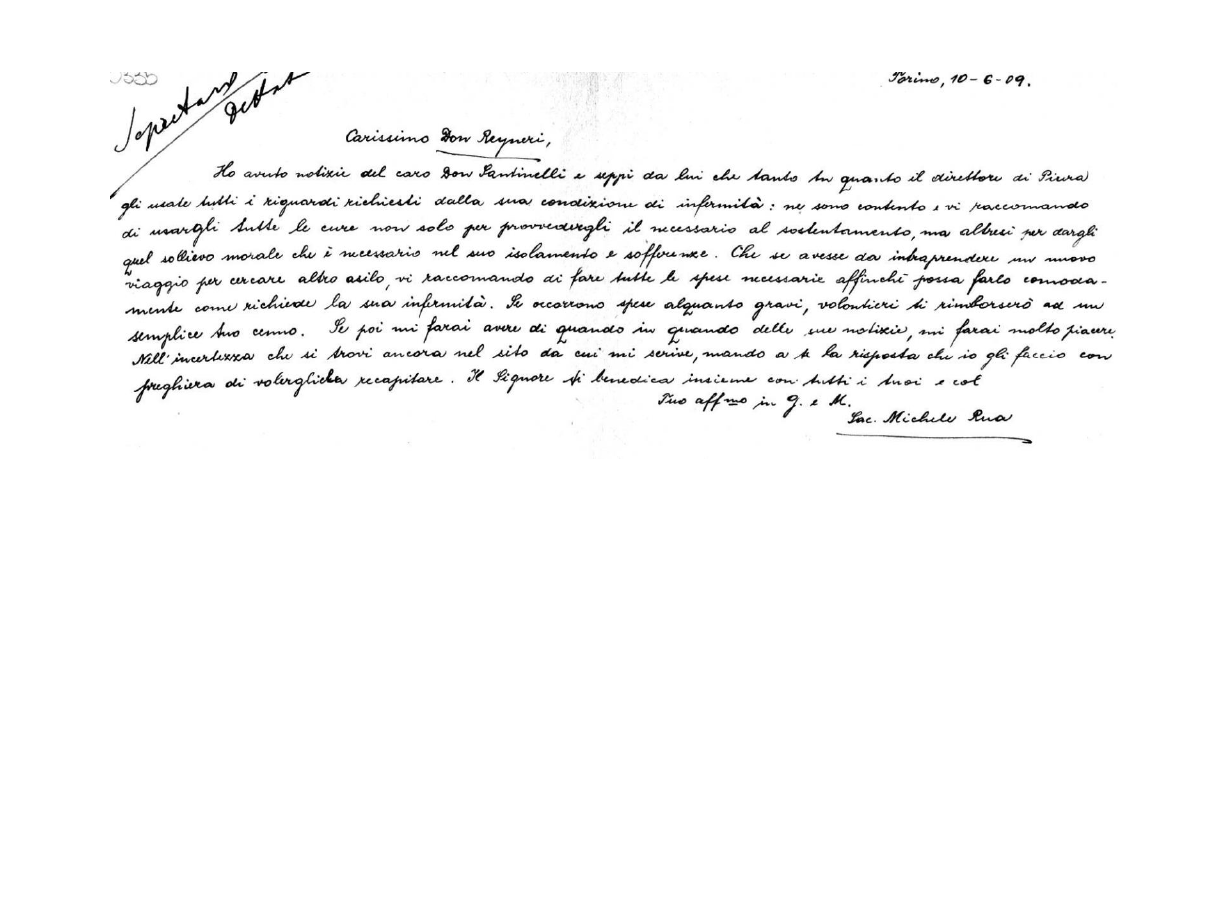 Torino, 10-6-09.
Carissimo Don Reyneri,
Ho avuto notizie del caro Don Santinelli e seppi da lui che tanto tu quanto il direttore di Piura
gli usate tutti i riguardi richiesti dalla sua condizione di infermità: ne sono contento e vi raccomando
di usargli tutte le cure non solo per provvedergli il necessario al sostentamento, ma altresì per dargli
quel sollievo morale che è necessario nel suo isolamento e sofferenze. Che se avesse da intraprendere un nuovo
viaggio per cercare altro asilo, vi raccomando di fare tutte le spese necessarie affinchè possa farlo comoda-
mente come richiede la sua infermità. Se occorrono spese alquanto gravi, volontieri ti rimborserò ad un
semplice tuo cenno. Se poi mi farai avere di quando in quando delle sue notizie, mi farai molto piacere.
Nell'incertezza che si trovi ancora nel sito da cui mi scrive, mando a te la risposta che io gli faccio con
preghiera di volergliela recapitare. Il Signore ti benedica insieme con tutti i tuoi e col
Tuo affmo in G. e M.
Sac. Michele Rua